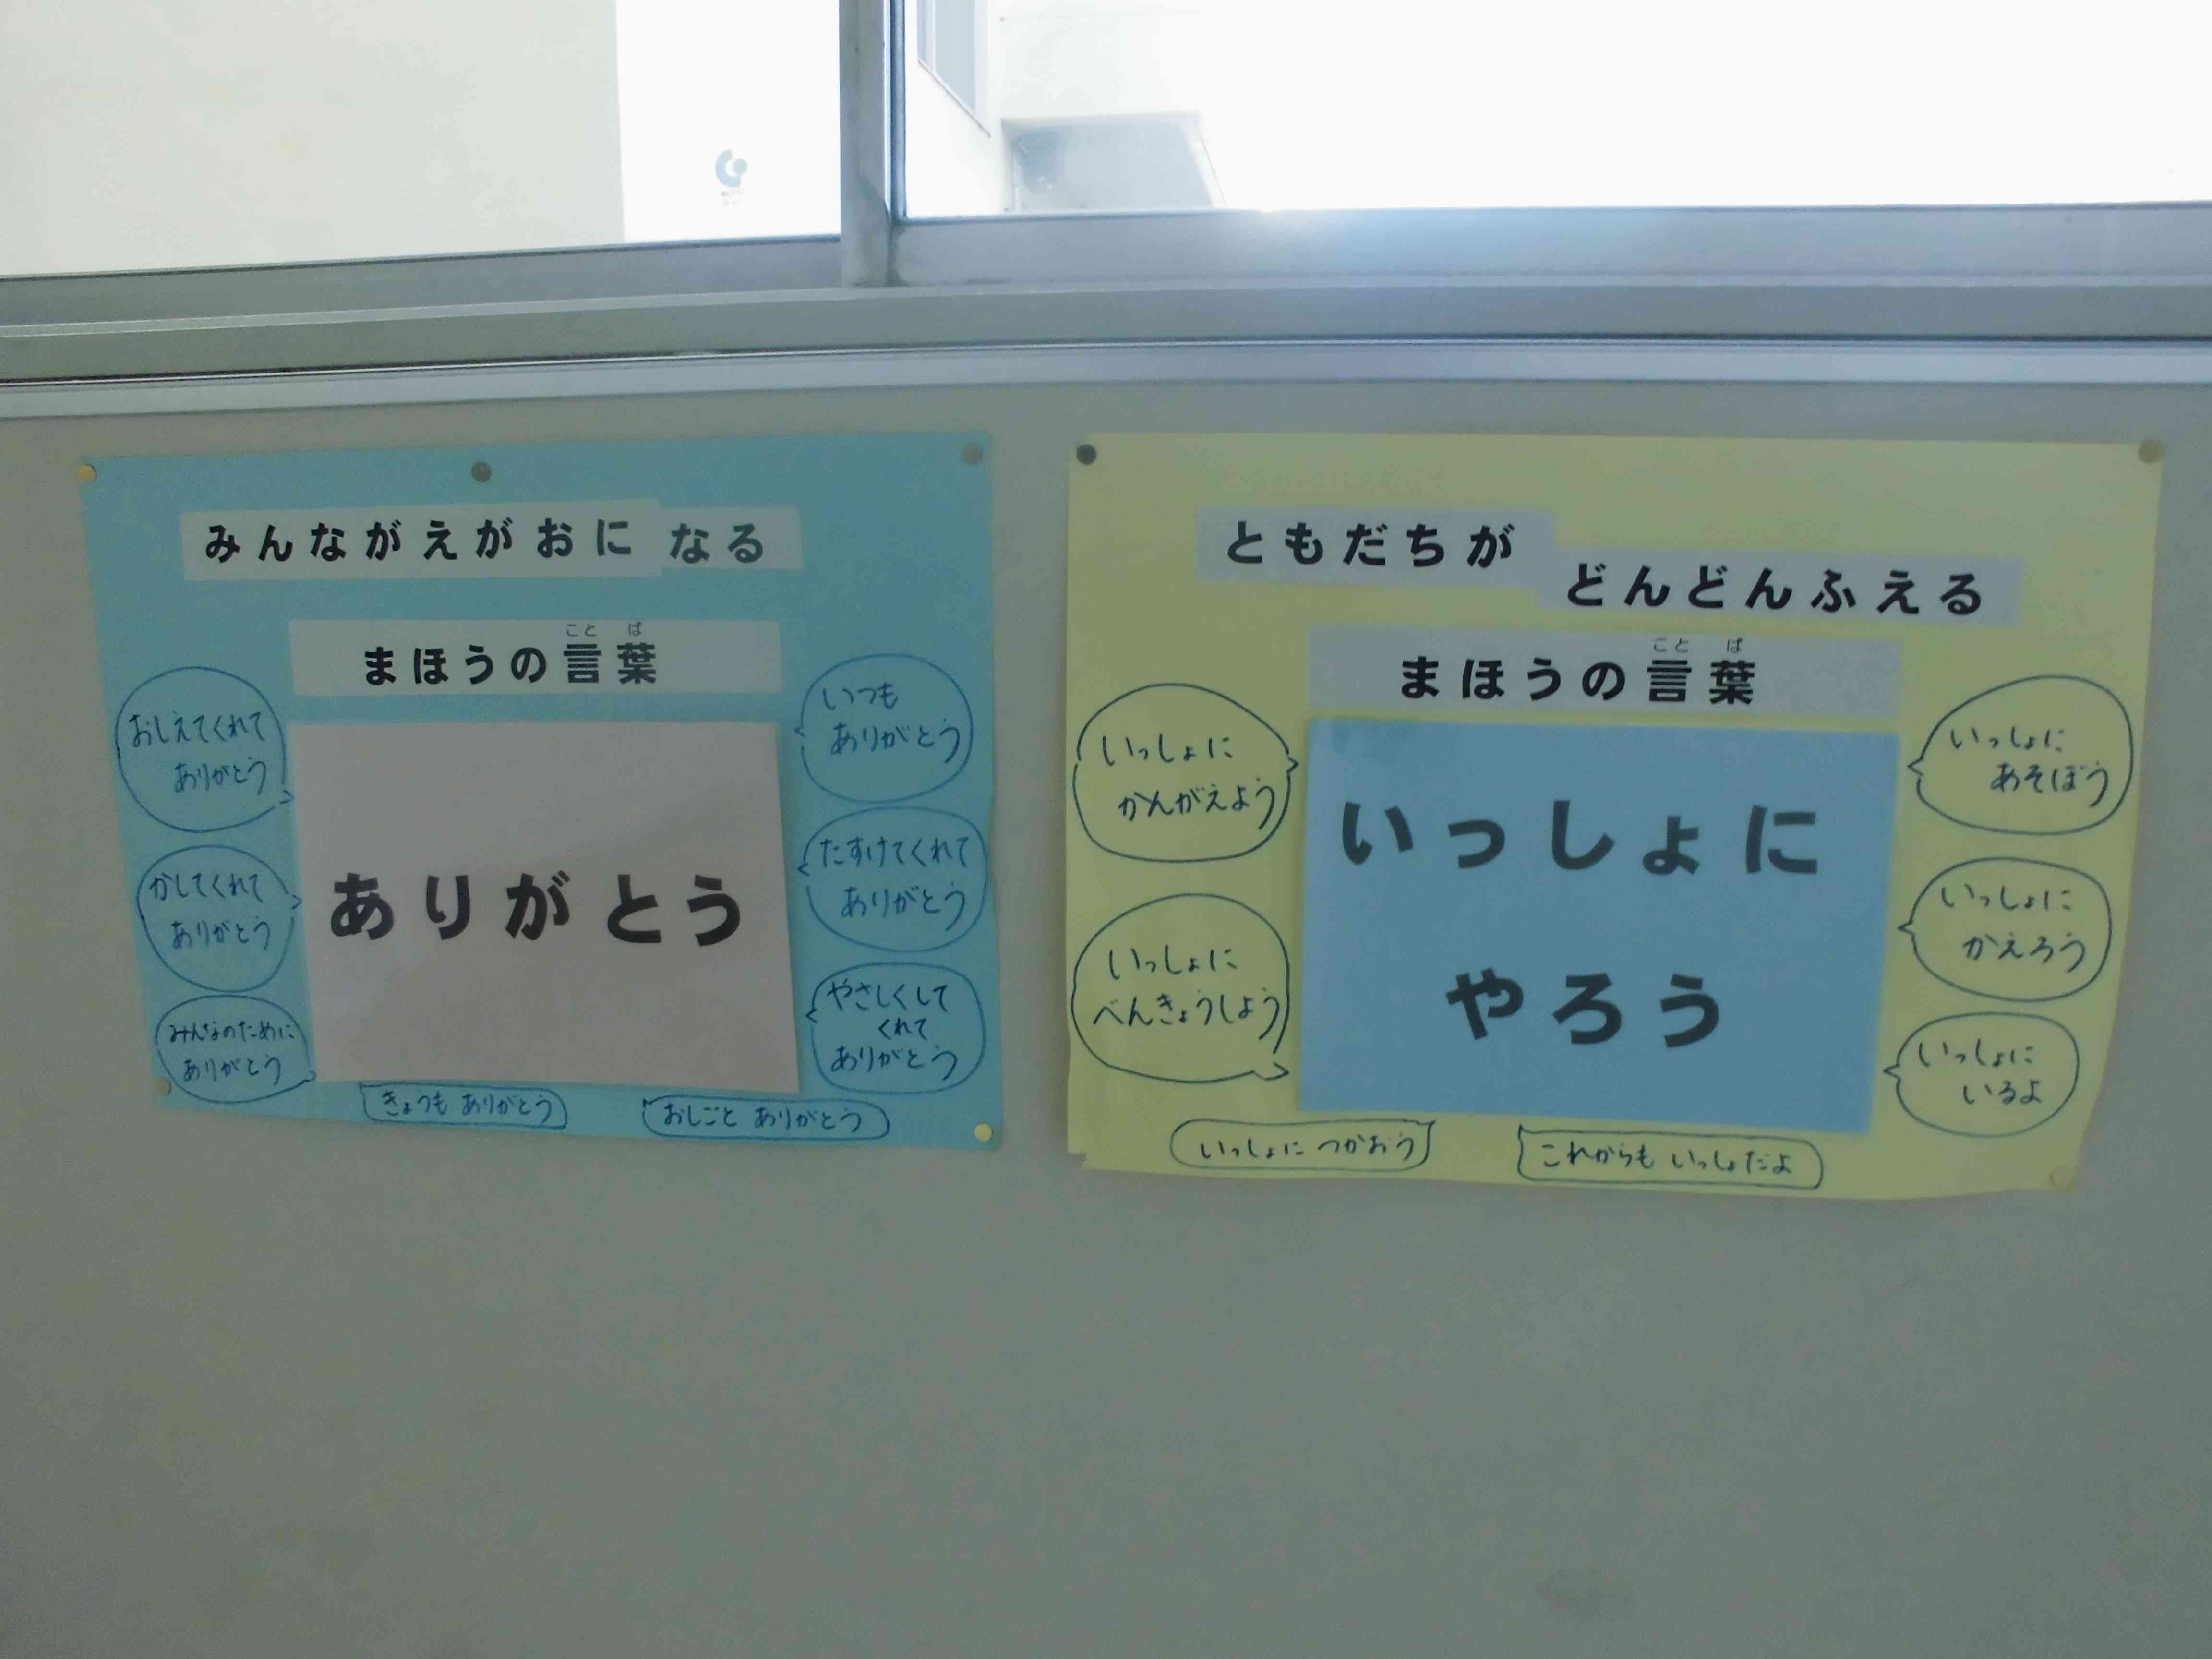 みんながえがおになる
まほうの言葉
ことば
ありがとう
おしえてくれて
ありがとう
かしてくれて
ありがとう
みんなのために
ありがとう
いつも
ありがとう
たすけてくれて
ありがとう
やさしくして
くれて
ありがとう
きょうも ありがとう
おしごと ありがとう
ともだちが
どんどんふえる
まほうの言葉
ことば
いっしょに
やろう
いっしょに
かんがえよう
いっしょに
べんきょうしよう
いっしょに
あそぼう
いっしょに
かえろう
いっしょに
いるよ
いっしょに つかおう
これからも いっしょだよ